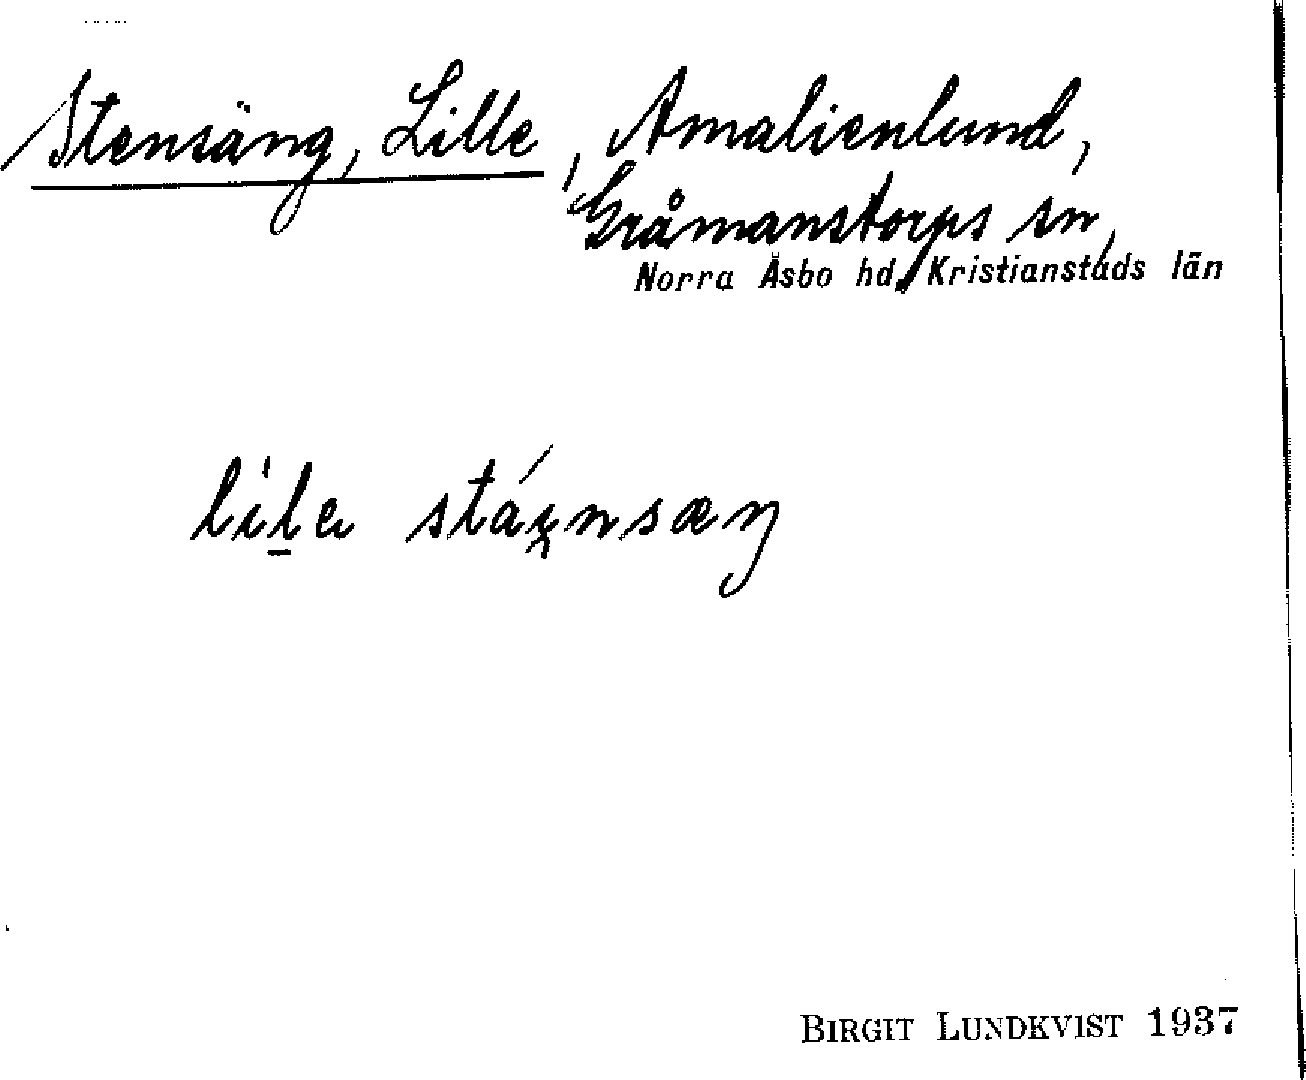 Stensäng, Lille, Amalienlund,
Gråmanstorps sn,
Norra Åsbo hd, Kristianstads län
BIRGIT LUNDKVIST 1937